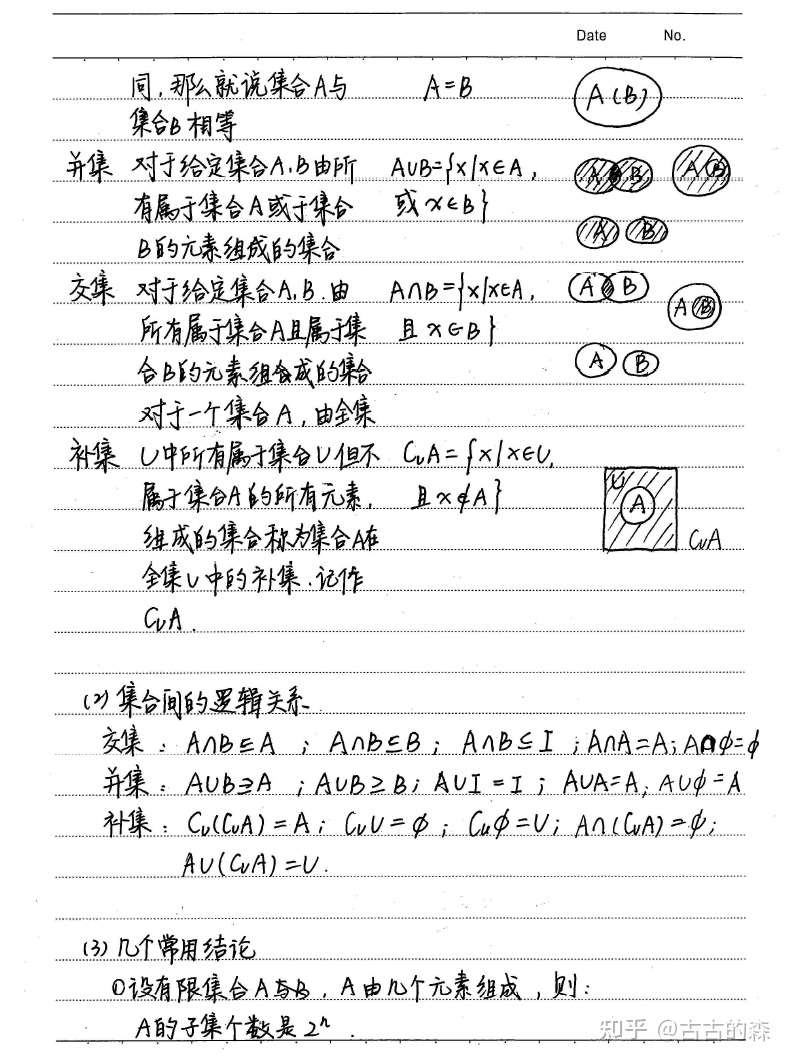 Date No.
同,那么就说集合A与 A=B A(B)
集合B相等
并集 对于给定集合A,B由所 A∪B={x/x∈A, A B A B
有属于集合A或于集合 或x∈B}
B的元素组成的集合 A B
交集 对于给定集合A,B.由 A∩B={x/x∈A, A B
所有属于集合A且属于集 且x∈B} A B
合B的元素组合成的集合 A B
对于一个集合A,由全集
补集 U中所有属于集合U但不 C∪A={x/x∈U, U
属于集合A的所有元素, 且x∉A} A
组成的集合称为集合A在 C∪A
全集U中的补集.记作
C∪A.
(2)集合间的逻辑关系
交集:A∩B⊆A;A∩B⊆B;A∩B⊆I;A∩A=A;A∩φ=φ
并集:A∪B⊇A;A∪B⊇B;A∪I=I;A∪A=A;A∪φ=A
补集:C∪(C∪A)=A;C∪U=φ;Cuφ=U;A∩(C∪A)=φ;
A∪(C∪A)=U.
(3)几个常用结论
①设有限集合A与B,A由几个元素组成,则:
A的子集个数是2ⁿ.
知乎 @古古的森